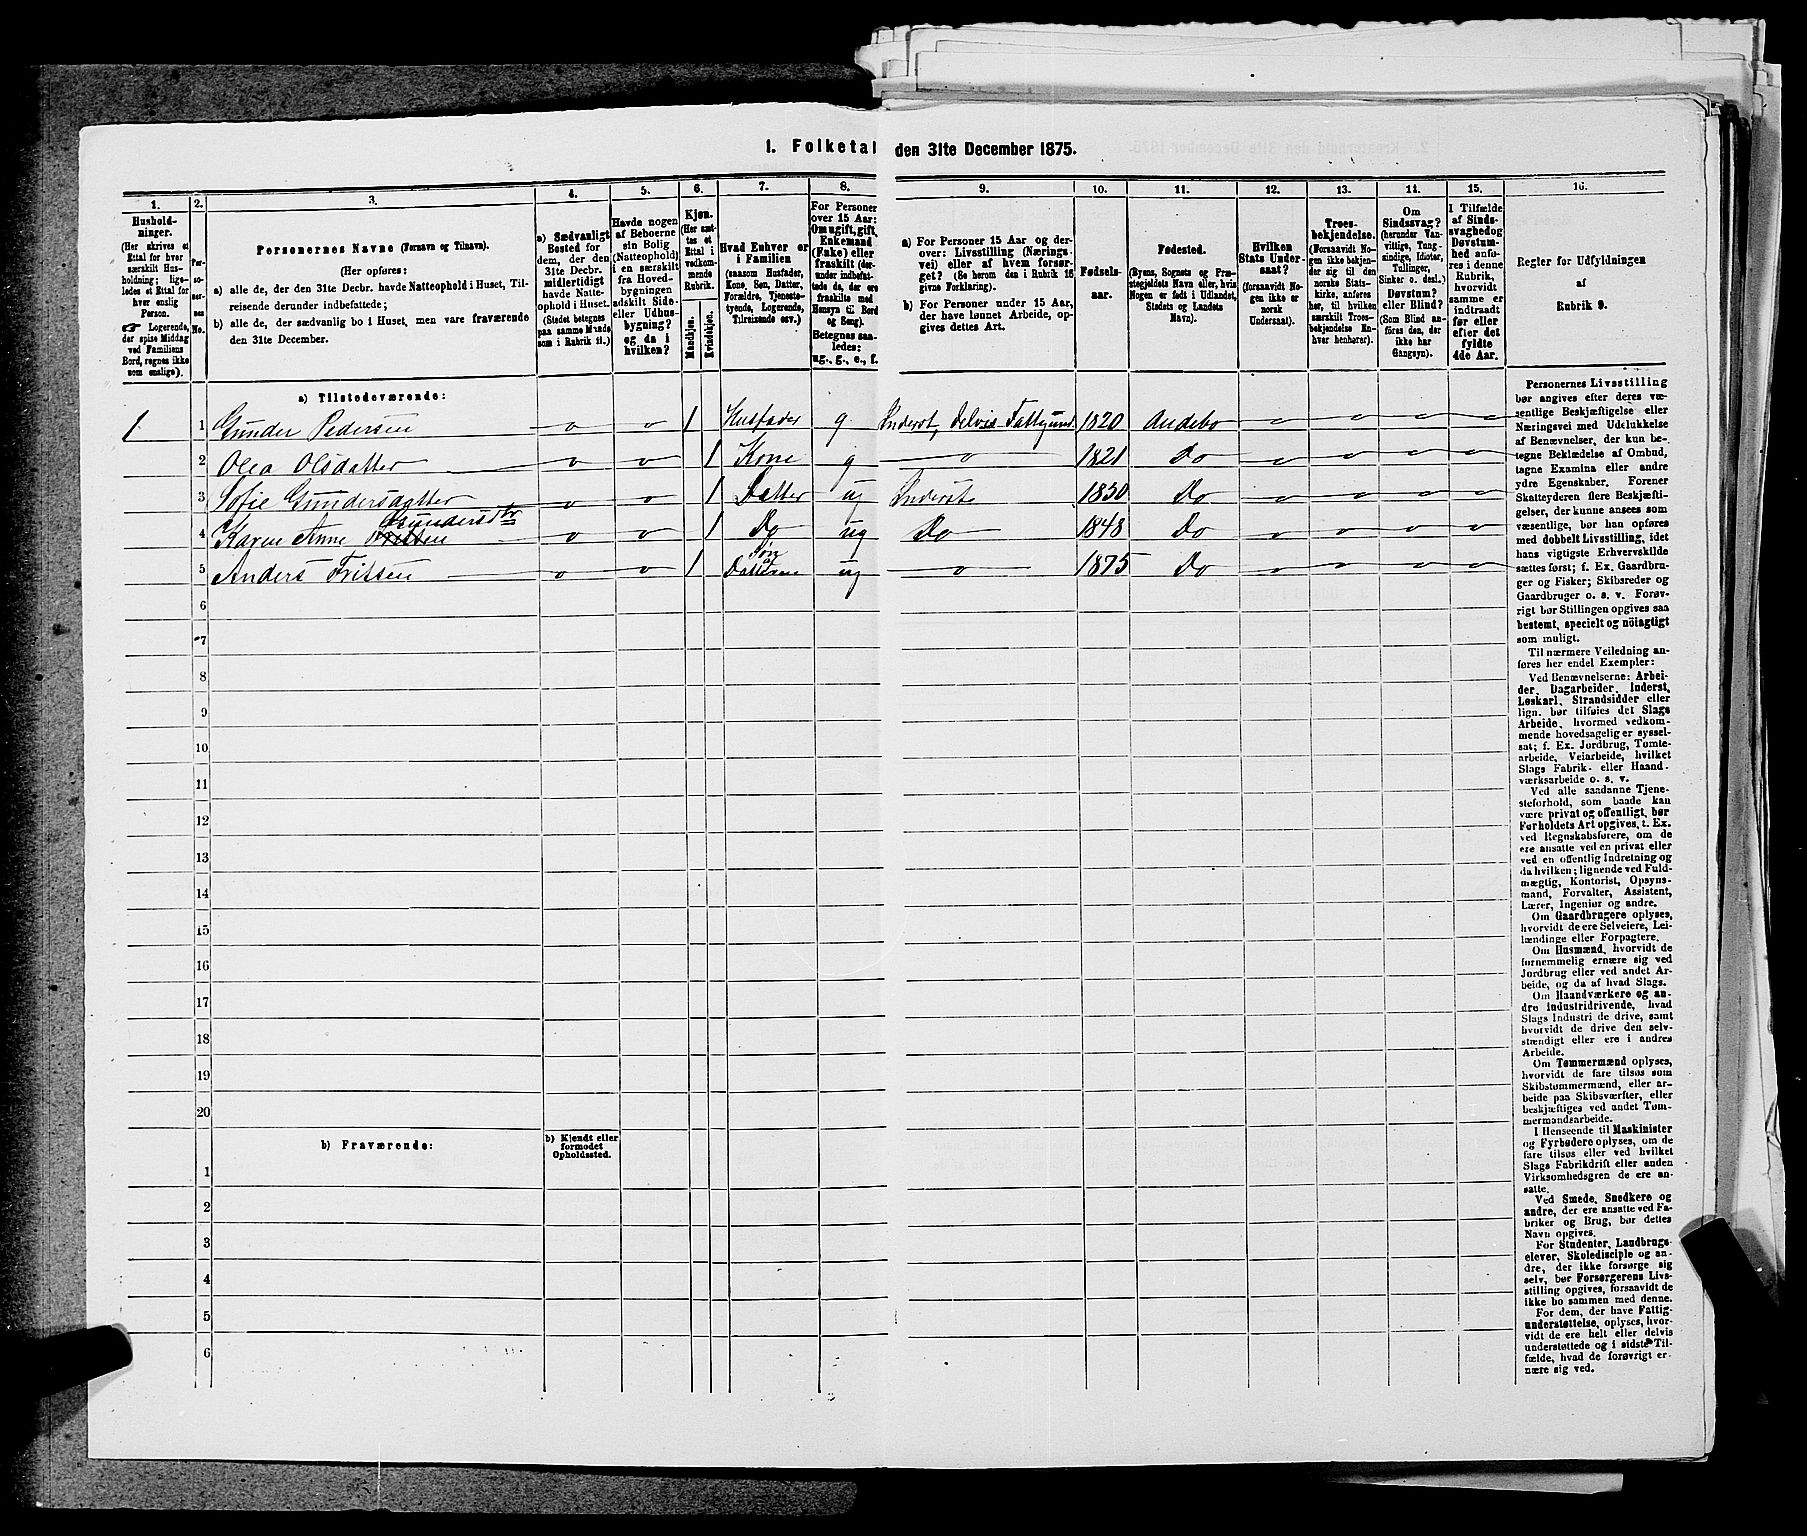 1. Folketal den 31te December 1875.
1. 2. 3. 4. 5. 6. 7. 8. 9. 10. 11. 12. 13. 14. 15. 16.
Hushold-
ninger.
(Her skrives et
Ettal for hver
særskilt Hus-
holdning; lige-
ledes et Ettal for
hver enslig
Person.
☞ Logerende,
der spise Middag
ved Familiens
Bord, regnes ikke
som enslige).
Per-
so-
ner-
nes
No.
Personernes Navne (Fornavn og Tilnavn).
(Her opføres:
a) alle de, der den 31te Decbr. havde Natteophold i Huset, Til-
reisende derunder indbefattede;
b) alle de, der sædvanlig bo i Huset, men vare fraværende
den 31te December.
a) Sædvanligt
Bosted for
dem, der den
31te Decbr.
midlertidigt
havde Natte-
ophold i Huset.
(Stedet betegnes
paa samme Maade
som i Rubrik 11.)
Havde nogen
af Beboerne
sin Bolig
(Natteophold)
i en særskilt
fra Hoved-
bygningen
adskilt Side-
eller Udhus-
bygning?
og da i
hvilken?
Kjøn.
(Her sæt-
tes et
Ettal i
vedkom-
mende
Rubrik.
Mandkjøn.
Kvindekjøn.
Hvad Enhver er
i Familien
(saasom Husfader,
Kone, Søn, Datter,
Forældre, Tjeneste-
tyende, Logerende,
Tilreisende osv.)
For Personer
over 15 Aar:
Om ugift, gift,
Enkemand
(Enke) eller
fraskilt (der-
under indbefat-
tede de, der ere
fraskilte med
Hensyn til Bord
og Seng).
Betegnes saa-
ledes:
ug., g., e., f.
a) For Personer 15 Aar og der-
over: Livsstilling (Nærings-
vei) eller af hvem forsør-
get? (Se herom den i Rubrik 16
givne Forklaring).
b) For Personer under 15 Aar,
der have lønnet Arbeide, op-
gives dettes Art.
Fødsels-
aar.
Fødested.
(Byens, Sognets og Præ-
stegjeldets Navn eller, hvis
Nogen er født i Udlandet,
Stedets og Landets
Navn).
Hvilken
Stats Under-
saat?
(forsaavidt No-
gen ikke er
norsk
Undersaat).
Troes-
bekjendelse.
(Forsaavidt No-
gen ikke bekjen-
der sig til den
norske Stats-
kirke, anføres
her, til hvilken
særskilt Troes-
bekjendelse En-
hver henhører).
Om
Sindssvag?
(herunder Van-
vittige, Tung-
sindige, Idioter,
Tullinger,
Sinker o. desl.)
Døvstum?
eller Blind?
(Som Blind an-
føres den, der
ikke har
Gangsyn).
I Tilfælde
af Sinds-
svaghed og
Døvstum-
hed anfø-
res i denne
Rubrik,
hvorvidt
samme er
indtraadt
før eller
efter det
fyldte
4de Aar.
Regler for Udfyldningen
af
Rubrik 9.
a) Tilstedeværende:
1 1 Gunder Pedersen o o 1 Husfader g Inderst, delvis Fattigund. 1820 Andebo o o o o
2 Olea Olsdatter o o 1 Kone g o 1821 Do o o o o
3 Sofie Gundersdatter o o 1 Datter ug Inderst 1850 Do o o o o
Gundersdtr
4 Karen Anne Fritsen o o 1 Do ug Do 1848 Do o o o o
Søn
5 Anders Fritsen o o 1 Datterne ug o 1875 Do o o o o
6
7
8
9
10
11
12
13
14
15
16
17
18
19
20
b) Fraværende:
b) Kjendt eller
formodet
Opholdssted.
1
2
3
4
5
6
Personernes Livsstilling
bør angives efter deres væ-
sentlige Beskjæftigelse eller
Næringsvei med Udelukkelse
af Benævnelser, der kun be-
tegne Beklædelse af Ombud,
tagne Examina eller andre
ydre Egenskaber. Forener
Skatteyderen flere Beskjæfti-
gelser, der kunne ansees som
væsentlige, bør han opføres
med dobbelt Livsstilling, idet
hans vigtigste Erhvervskilde
sættes først; f. Ex. Gaardbru-
ger og Fisker; Skibsreder og
Gaardbruger o. s. v. Forøv-
rigt bør Stillingen opgives saa
bestemt, specielt og nöiagtigt
som muligt.
Til nærmere Veiledning an-
føres her endel Exempler:
Ved Benævnelserne: Arbei-
der, Dagarbeider, Inderst,
Løskarl, Strandsidder eller
lign. bør tilføies det Slags
Arbeide, hvormed vedkom-
mende hovedsagelig er syssel-
sat; f. Ex. Jordbrug, Tomte-
arbeide, Veiarbeide, hvilket
Slags Fabrik- eller Haand-
værksarbeide o. s. v.
Ved alle saadanne Tjene-
steforhold, som baade kan
være privat og offentligt, bør
Forholdets Art opgives, t. Ex.
ved Regnskabsførere, om de
ere ansatte ved en privat eller
ved en offentlig Indretning og
da hvilken; lignende ved Fuld-
mægtig, Kontorist, Opsyns-
mand, Forvalter, Assistent,
Lærer, Ingeniør og andre.
Om Gaardbrugere oplyses,
hvorvidt de ere Selveiere, Lei-
lændinge eller Forpagtere.
Om Husmænd, hvorvidt de
fornemmelig ernære sig ved
Jordbrug eller ved andet Ar-
beide, og da af hvad Slags.
Om Haandværkere og an-
dre industridrivende, hvad
Slags Industri de drive, samt
hvorvidt de drive den selv-
stændigt eller ere i andres
Arbeide.
Om Tømmermænd oplyses,
hvorvidt de fare tilsøs som
Skibstømmermænd, eller ar-
beide paa Skibsværfter, eller
beskjæftiges ved andet Tøm-
mermandsarbeide.
I Henseende til Maskinister
og Fyrbødere oplyses, om de
fare tilsøs eller ved hvilket
Slags Fabrikdrift eller anden
Virksomhedsgren de ere an-
satte.
Ved Smede, Snedkere og
andre, der ere ansatte ved Fa-
briker og Brug, bør dettes
Navn opgives.
For Studenter, Landbrugs-
elever, Skoledisciple og an-
dre, der ikke forsørge sig
selv, bør Forsørgerens Livs-
stilling opgives, forsaavidt de
ikke bo sammen med denne.
For dem, der have Fattig-
understøttelse, oplyses, hvor-
vidt de ere helt eller delvis
understøttede og i sidste Til-
fælde, hvad de forøvrigt er-
nære sig ved.